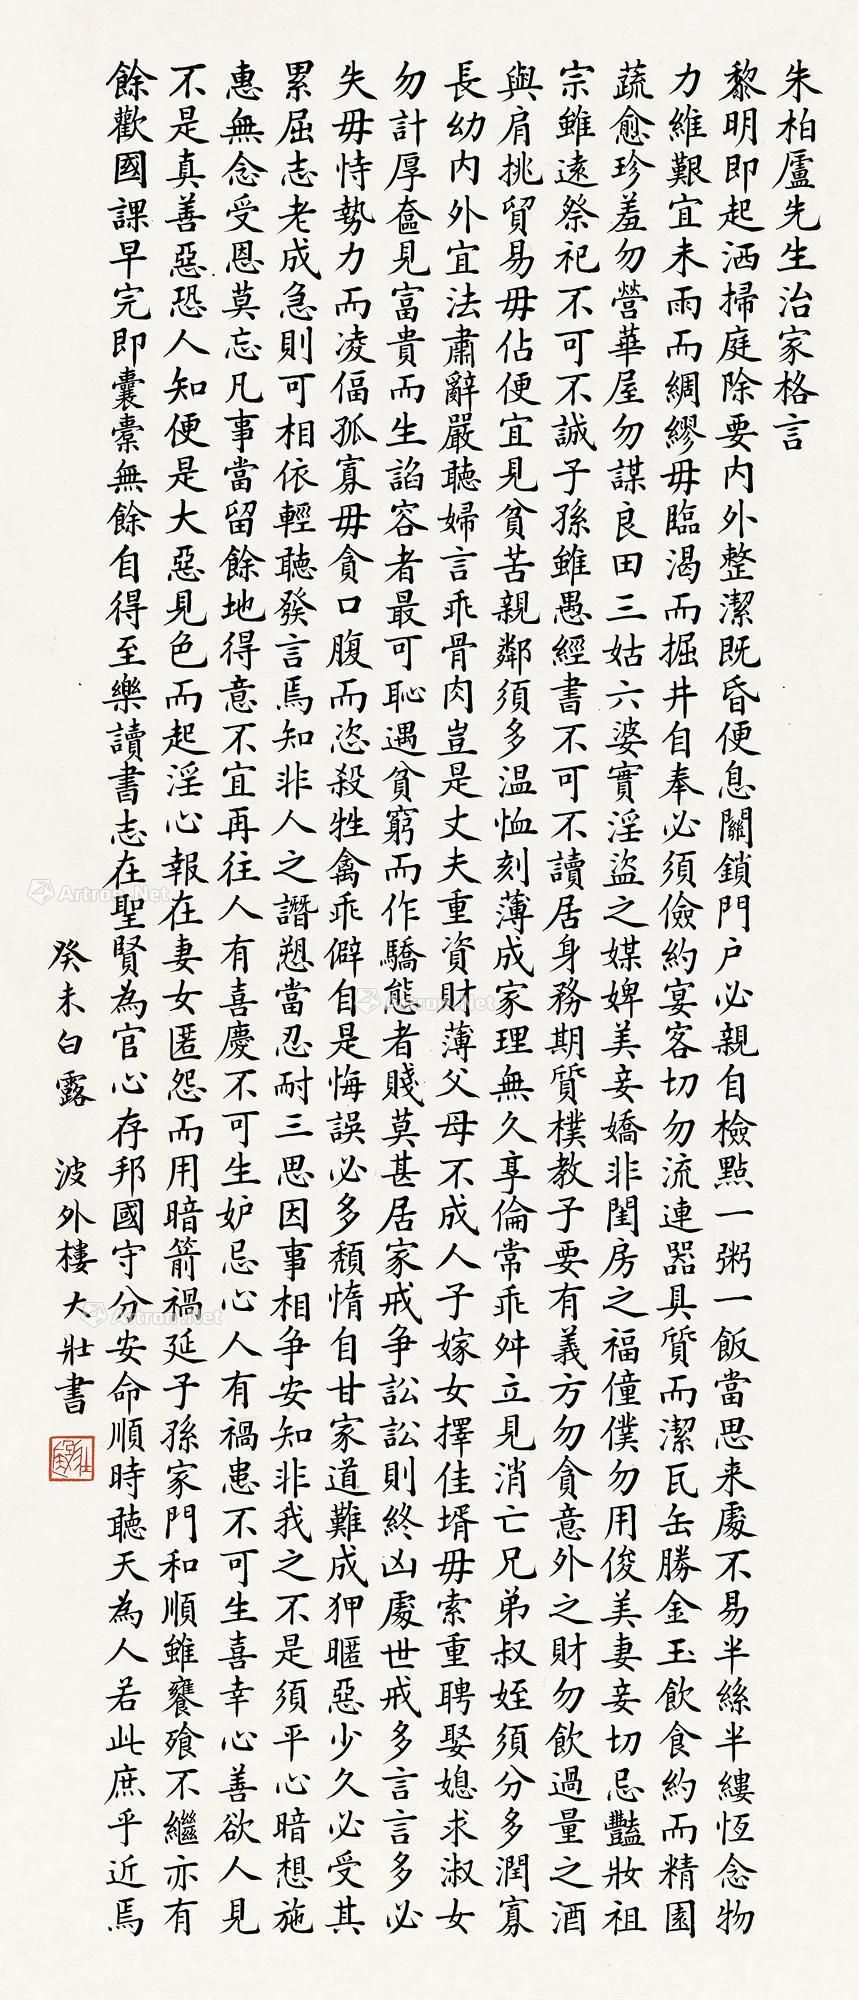 朱柏廬先生治家格言
黎明即起洒掃庭除要內外整潔既昏便息關鎖門户必親自檢點一粥一飯當思来處不易半絲半縷恆念物
力維艱宜未雨而綢繆毋臨渴而掘井自奉必須儉約宴客切勿流連器具質而潔瓦缶勝金玉飲食約而精園
蔬愈珍羞勿營華屋勿謀良田三姑六婆實淫盜之媒婢美妾嬌非閨房之福僮僕勿用俊美妻妾切忌豔妝祖
宗雖遠祭祀不可不誠子孫雖愚經書不可不讀居身務期質樸教子要有義方勿貪意外之財勿飲過量之酒
與肩挑貿易毋佔便宜見貧苦親鄰須多温恤刻薄成家理無久享倫常乖舛立見消亡兄弟叔姪須分多潤寡
長幼內外宜法肅辭嚴聽婦言乖骨肉豈是丈夫重資財薄父母不成人子嫁女擇佳壻毋索重聘娶媳求淑女
勿計厚奩見富貴而生諂容者最可恥遇貧窮而作驕態者賤莫甚居家戒争訟訟則終凶處世戒多言言多必
失毋恃勢力而凌偪孤寡毋貪口腹而恣殺牲禽乖僻自是悔誤必多頹惰自甘家道難成狎暱惡少久必受其
累屈志老成急則可相依輕聽發言焉知非人之譖愬當忍耐三思因事相争安知非我之不是須平心暗想施
惠無念受恩莫忘凡事當留餘地得意不宜再往人有喜慶不可生妒忌心人有禍患不可生喜幸心善欲人見
不是真善惡恐人知便是大惡見色而起淫心報在妻女匿怨而用暗箭禍延子孫家門和順雖饔飧不繼亦有
餘歡國課早完即囊橐無餘自得至樂讀書志在聖賢為官心存邦國守分安命順時聽天為人若此庶乎近焉
癸未白露 波外樓大壯書
Artron.Net
Artron.Net
Artron.Net